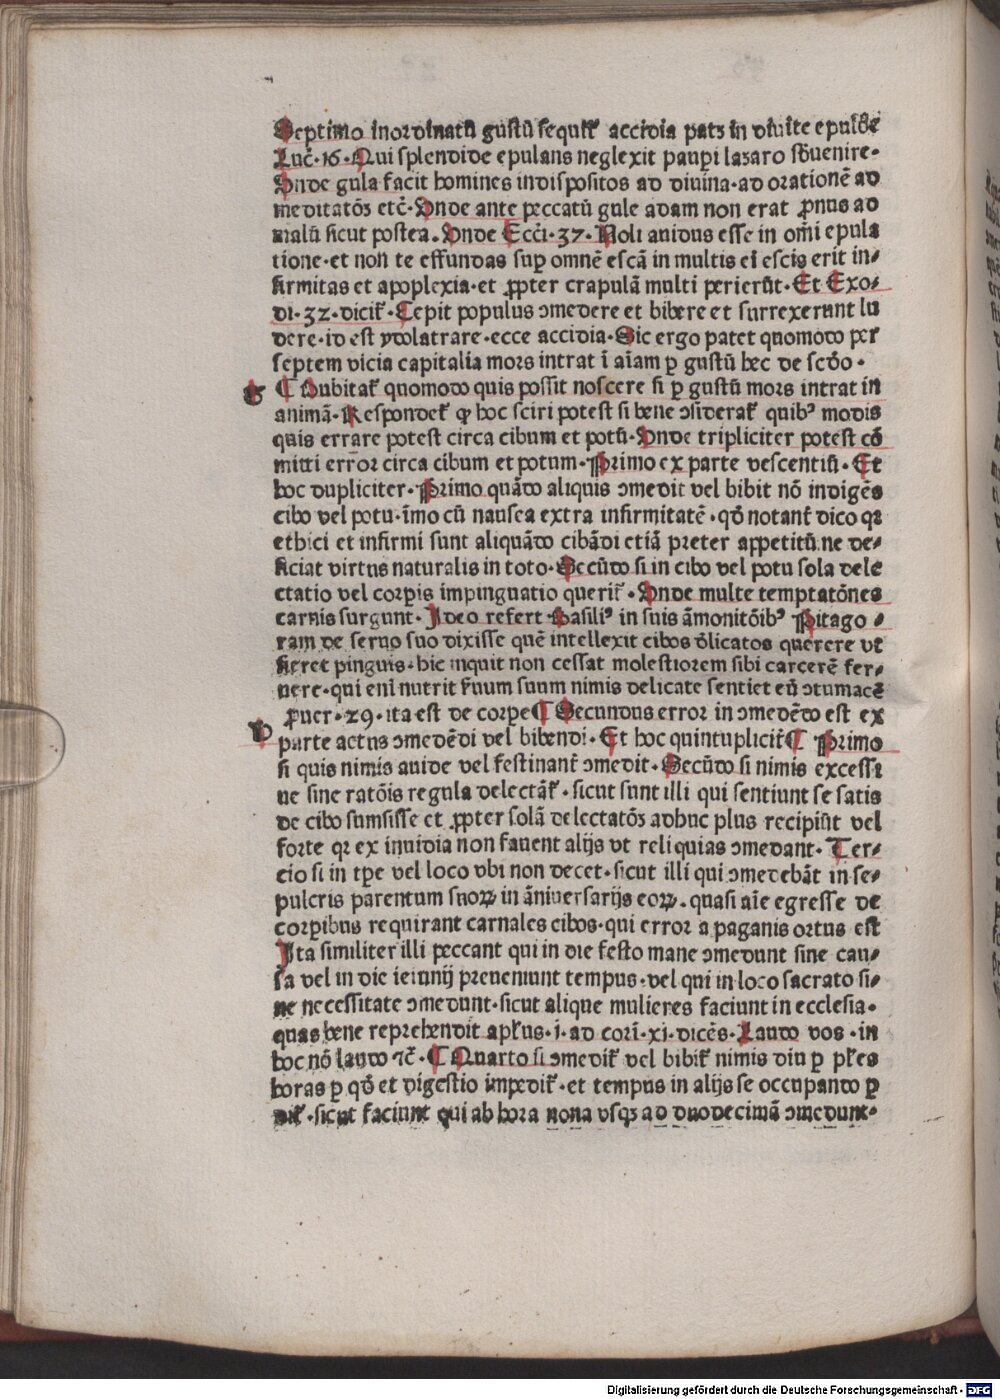 Septimo inordinatū gustū sequit᷑ accidia patꝫ in diuite epulōe
Luc̄·16·Qui splendide epulans neglexit paupi lazaro sb̄uenire·
Unde gula facit homines indispositos ad diuina·ad orationē ad
meditatōꝫ etc̄·Unde ante peccatū gule adam non erat ꝓnus ad
malū sicut postea·Unde Ecc̄i·37·Noli auidus esse in om̄i epula
tione·et non te effundas suꝑ omnē escā in multis eī escis erit in⸗
firmitas et apoplexia·et ꝓpter crapulā multi perierūt·Et Exo⸗
di·32·dicit᷑·Cepit populus ↄmedere et bibere et surrexerunt lu
dere·id est ydolatrare·ecce accidia·Sic ergo patet quomodo per
septem vicia capitalia mors intrat ī aīam ꝑ gustū hec de scd̄o·
¶ Dubitat᷑ quomodo quis possit noscere si ꝑ gustū mors intrat in
animā·Respondet᷑ ꝙ hoc sciri potest si bene ↄsiderat᷑ quibꝰ modis
quis errare potest circa cibum et potū·Unde tripliciter potest cō
mitti error circa cibum et potum·Primo ex parte vescentiū·Et
hoc dupliciter·Primo quādo aliquis ↄmedit vel bibit nō indigēs
cibo vel potu·īmo cū nausea extra infirmitatē·qd̄ notant᷑ dico qꝛ
ethici et infirmi sunt aliquādo cibādi etiā preter appetitū.ne de⸗
ficiat virtus naturalis in toto·Secūdo si in cibo vel potu sola dele
ctatio vel corpis impinguatio querit᷑·Unde multe temptatōnes
carnis surgunt·Ideo refert Basiliꝰ in suis āmonitōibꝰ Pitago⸗
ram de seruo suo dixisse quē intellexit cibos d̄licatos querere vt
fieret pinguis·hic inquit non cessat molestiorem sibi carcerē fer⸗
uere·qui enī nutrit ſ̄uum suum nimis delicate sentiet eū ↄtumacē
ꝓuer·29·ita est de corpe¶ Secundus error in ↄmedēdo est ex
b parte actus ↄmedēdi vel bibendi·Et hoc quintuplicit᷑¶ Primo
si quis nimis auide vel festinant᷑ ↄmedit·Secūdo si nimis excessi
ue sine ratōis regula delectāt᷑·sicut sunt illi qui sentiunt se satis
de cibo sumsisse et ꝓpter solā delectatōꝫ adhuc plus recipiūt vel
forte qꝛ ex inuidia non fauent alijs vt reliquias ↄmedant·Ter⸗
cio si in tpe vel loco vbi non decet·sicut illi qui ↄmedebāt in se⸗
pulcris parentum suoꝝ in āniuersarijs eoꝝ·quasi aīe egresse de
corpibus requirant carnales cibos·qui error a paganis ortus est
Ita similiter illi peccant qui in die festo mane ↄmedunt sine cau⸗
sa vel in die ieiunij preueniunt tempus·vel qui in loco sacrato si⸗
ne necessitate ↄmedunt·sicut alique mulieres faciunt in ecclesia·
quas bene reprehendit apl̄us·i·ad corī·xi·dicēs·Laudo vos·in
hoc nō laudo ⁊c̄·¶ Quarto si ↄmedit᷑ vel bibit᷑ nimis diu ꝑ pl̄es
horas ꝑ qd̄ et digestio impedit᷑·et tempus in alijs se occupando ꝑ
dit᷑·sicut faciunt qui ab hora nona vsqꝫ ad duodecimā ↄmedunt·
Digitalisierung gefördert durch die Deutsche Forschungsgemeinschaft - DFG